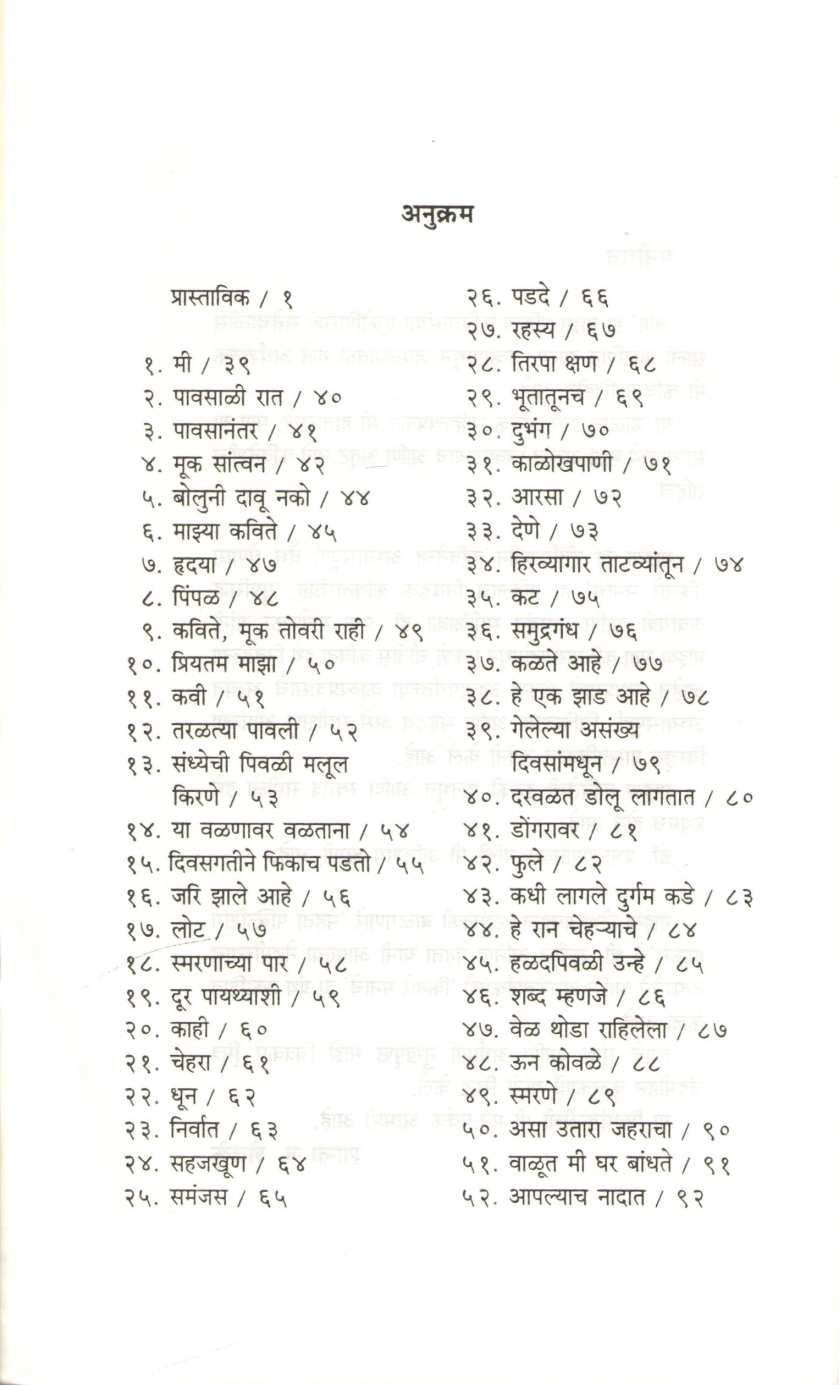 अनुक्रम
प्रास्ताविक / १
१. मी / ३९
२. पावसाळी रात / ४०
३. पावसानंतर / ४१
४. मूक सांत्वन / ४२
५. बोलुनी दावू नको / ४४
६. माझ्या कविते / ४५
७. हृदया / ४७
८. पिंपळ / ४८
९. कविते, मूक तोवरी राही / ४९
१०. प्रियतम माझा / ५०
११. कवी / ५१
१२. तरळत्या पावली / ५२
१३. संध्येची पिवळी मलूल
किरणे / ५३
१४. या वळणावर वळताना / ५४
१५. दिवसगतीने फिकाच पडतो / ५५
१६. जरि झाले आहे / ५६
१७. लोट / ५७
१८. स्मरणाच्या पार / ५८
१९. दूर पायथ्याशी / ५९
२०. काही / ६०
२१. चेहरा / ६१
२२. धून / ६२
२३. निर्वात / ६३
२४. सहजखूण / ६४
२५. समंजस / ६५
२६. पडदे / ६६
२७. रहस्य / ६७
२८. तिरपा क्षण / ६८
२९. भूतातूनच / ६९
३०. दुभंग / ७०
३१. काळोखपाणी / ७१
३२. आरसा / ७२
३३. देणे / ७३
३४. हिरव्यागार ताटव्यांतून / ७४
३५. कट / ७५
३६. समुद्रगंध / ७६
३७. कळते आहे / ७७
३८. हे एक झाड आहे / ७८
३९. गेलेल्या असंख्य
दिवसांमधून / ७९
४०. दरवळत डोलू लागतात / ८०
४१. डोंगरावर / ८१
४२. फुले / ८२
४३. कधी लागले दुर्गम कडे / ८३
४४. हे रान चेहऱ्याचे / ८४
४५. हळदपिवळी उन्हे / ८५
४६. शब्द म्हणजे / ८६
४७. वेळ थोडा राहिलेला / ८७
४८. ऊन कोवळे / ८८
४९. स्मरणे / ८९
५०. असा उतारा जहराचा / ९०
५१. वाळूत मी घर बांधते / ९१
५२. आपल्याच नादात / ९२